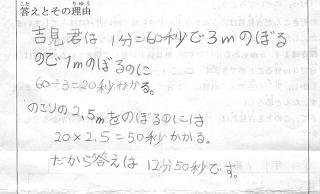 答えとその理由
吉見君は1分=60秒で3mのぼる
ので1mのぼるのに
60÷3=20秒かかる。
のこりの2.5mをのぼるのには
20×2.5=50秒かかる。
だから答えは12分50秒です。